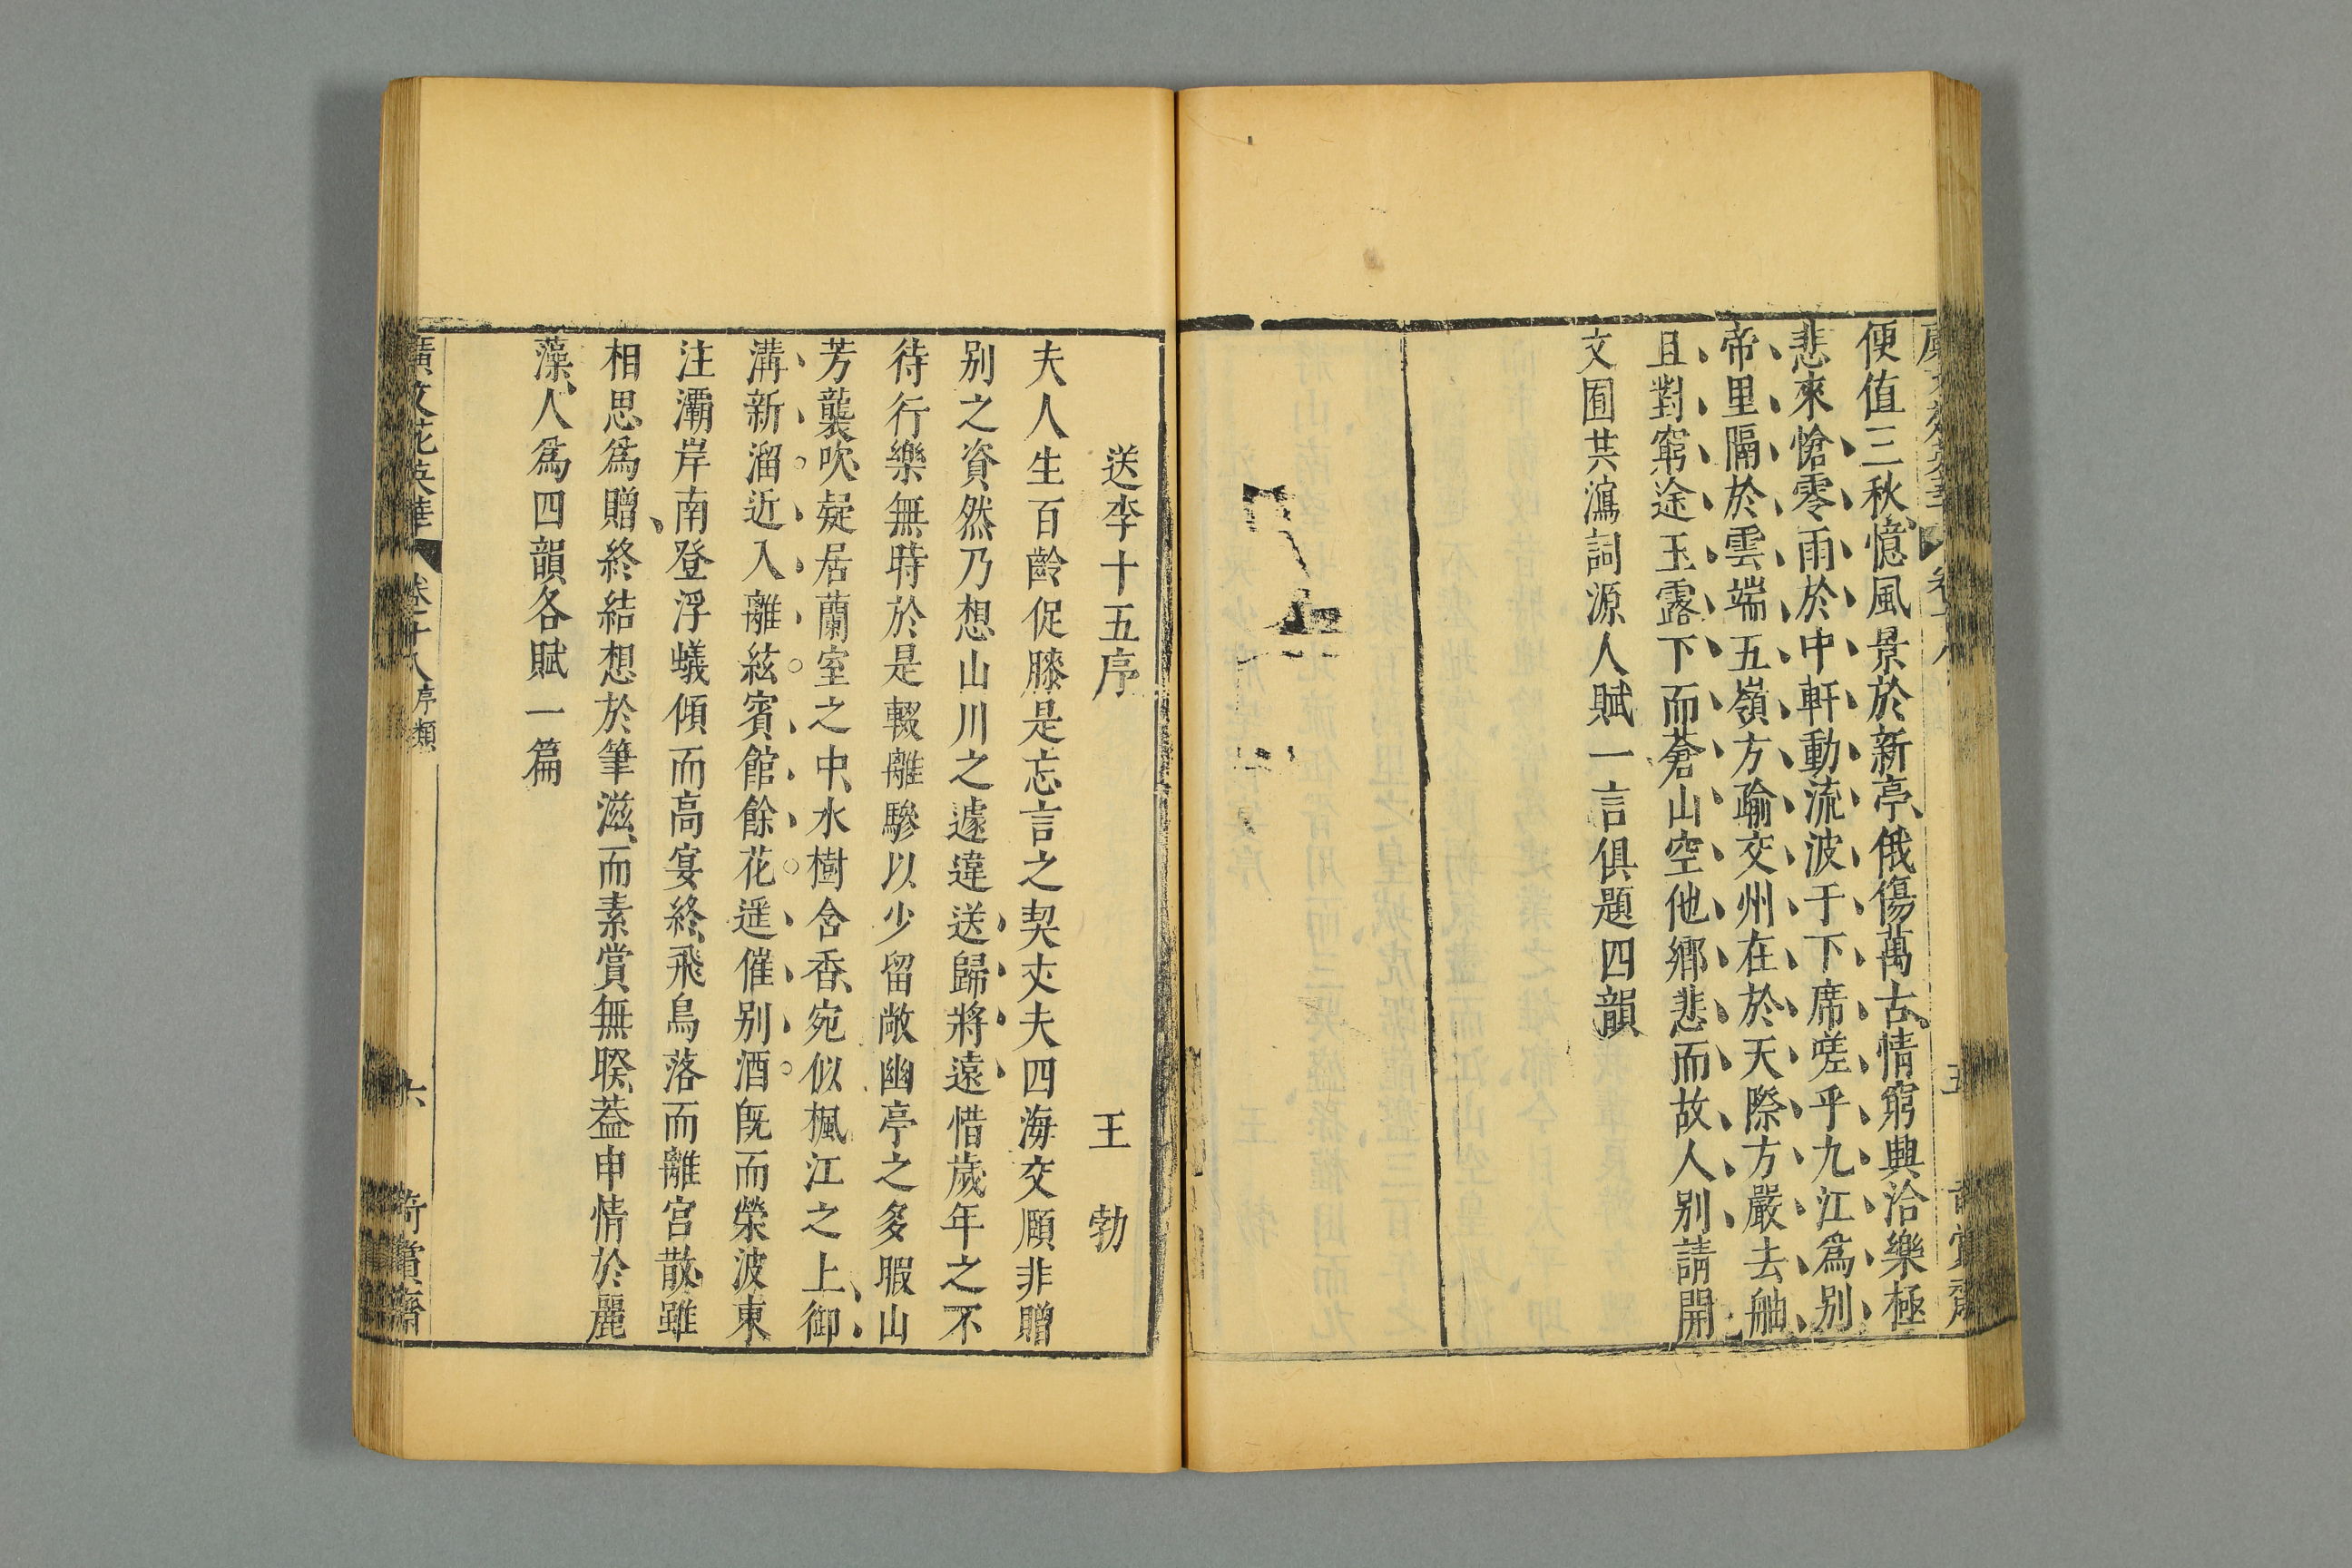 便值三秋憶風景於新亭俄傷萬古情窮興洽樂極
悲來愴零雨於中軒動流波于下席嗟乎九江爲別
帝里隔於雲端五嶺方踰交州在於天際方嚴去舳
且對窮途玉露下而蒼山空他鄉悲而故人別請開
文囿共瀉詞源人賦一言俱題四韻
送李十五序 王勃
夫人生百齡促膝是忘言之契丈夫四海交頤非贈
别之資然乃想山川之遽違送歸將遠惜歲年之不
待行樂無時於是輟離驂以少留敞幽亭之多暇山
芳襲吹疑居蘭室之中水樹含香宛似楓江之上御
溝新溜近入離絃賓館餘花遥催别酒旣而縈波東
注灞岸南登浮蟻傾而高宴終飛鳥落而離宫散雖
相思爲贈終結想於筆滋而素賞無暌葢申情於麗
藻人爲四韻各賦一篇
廣文苑英華 卷十八 序類 六